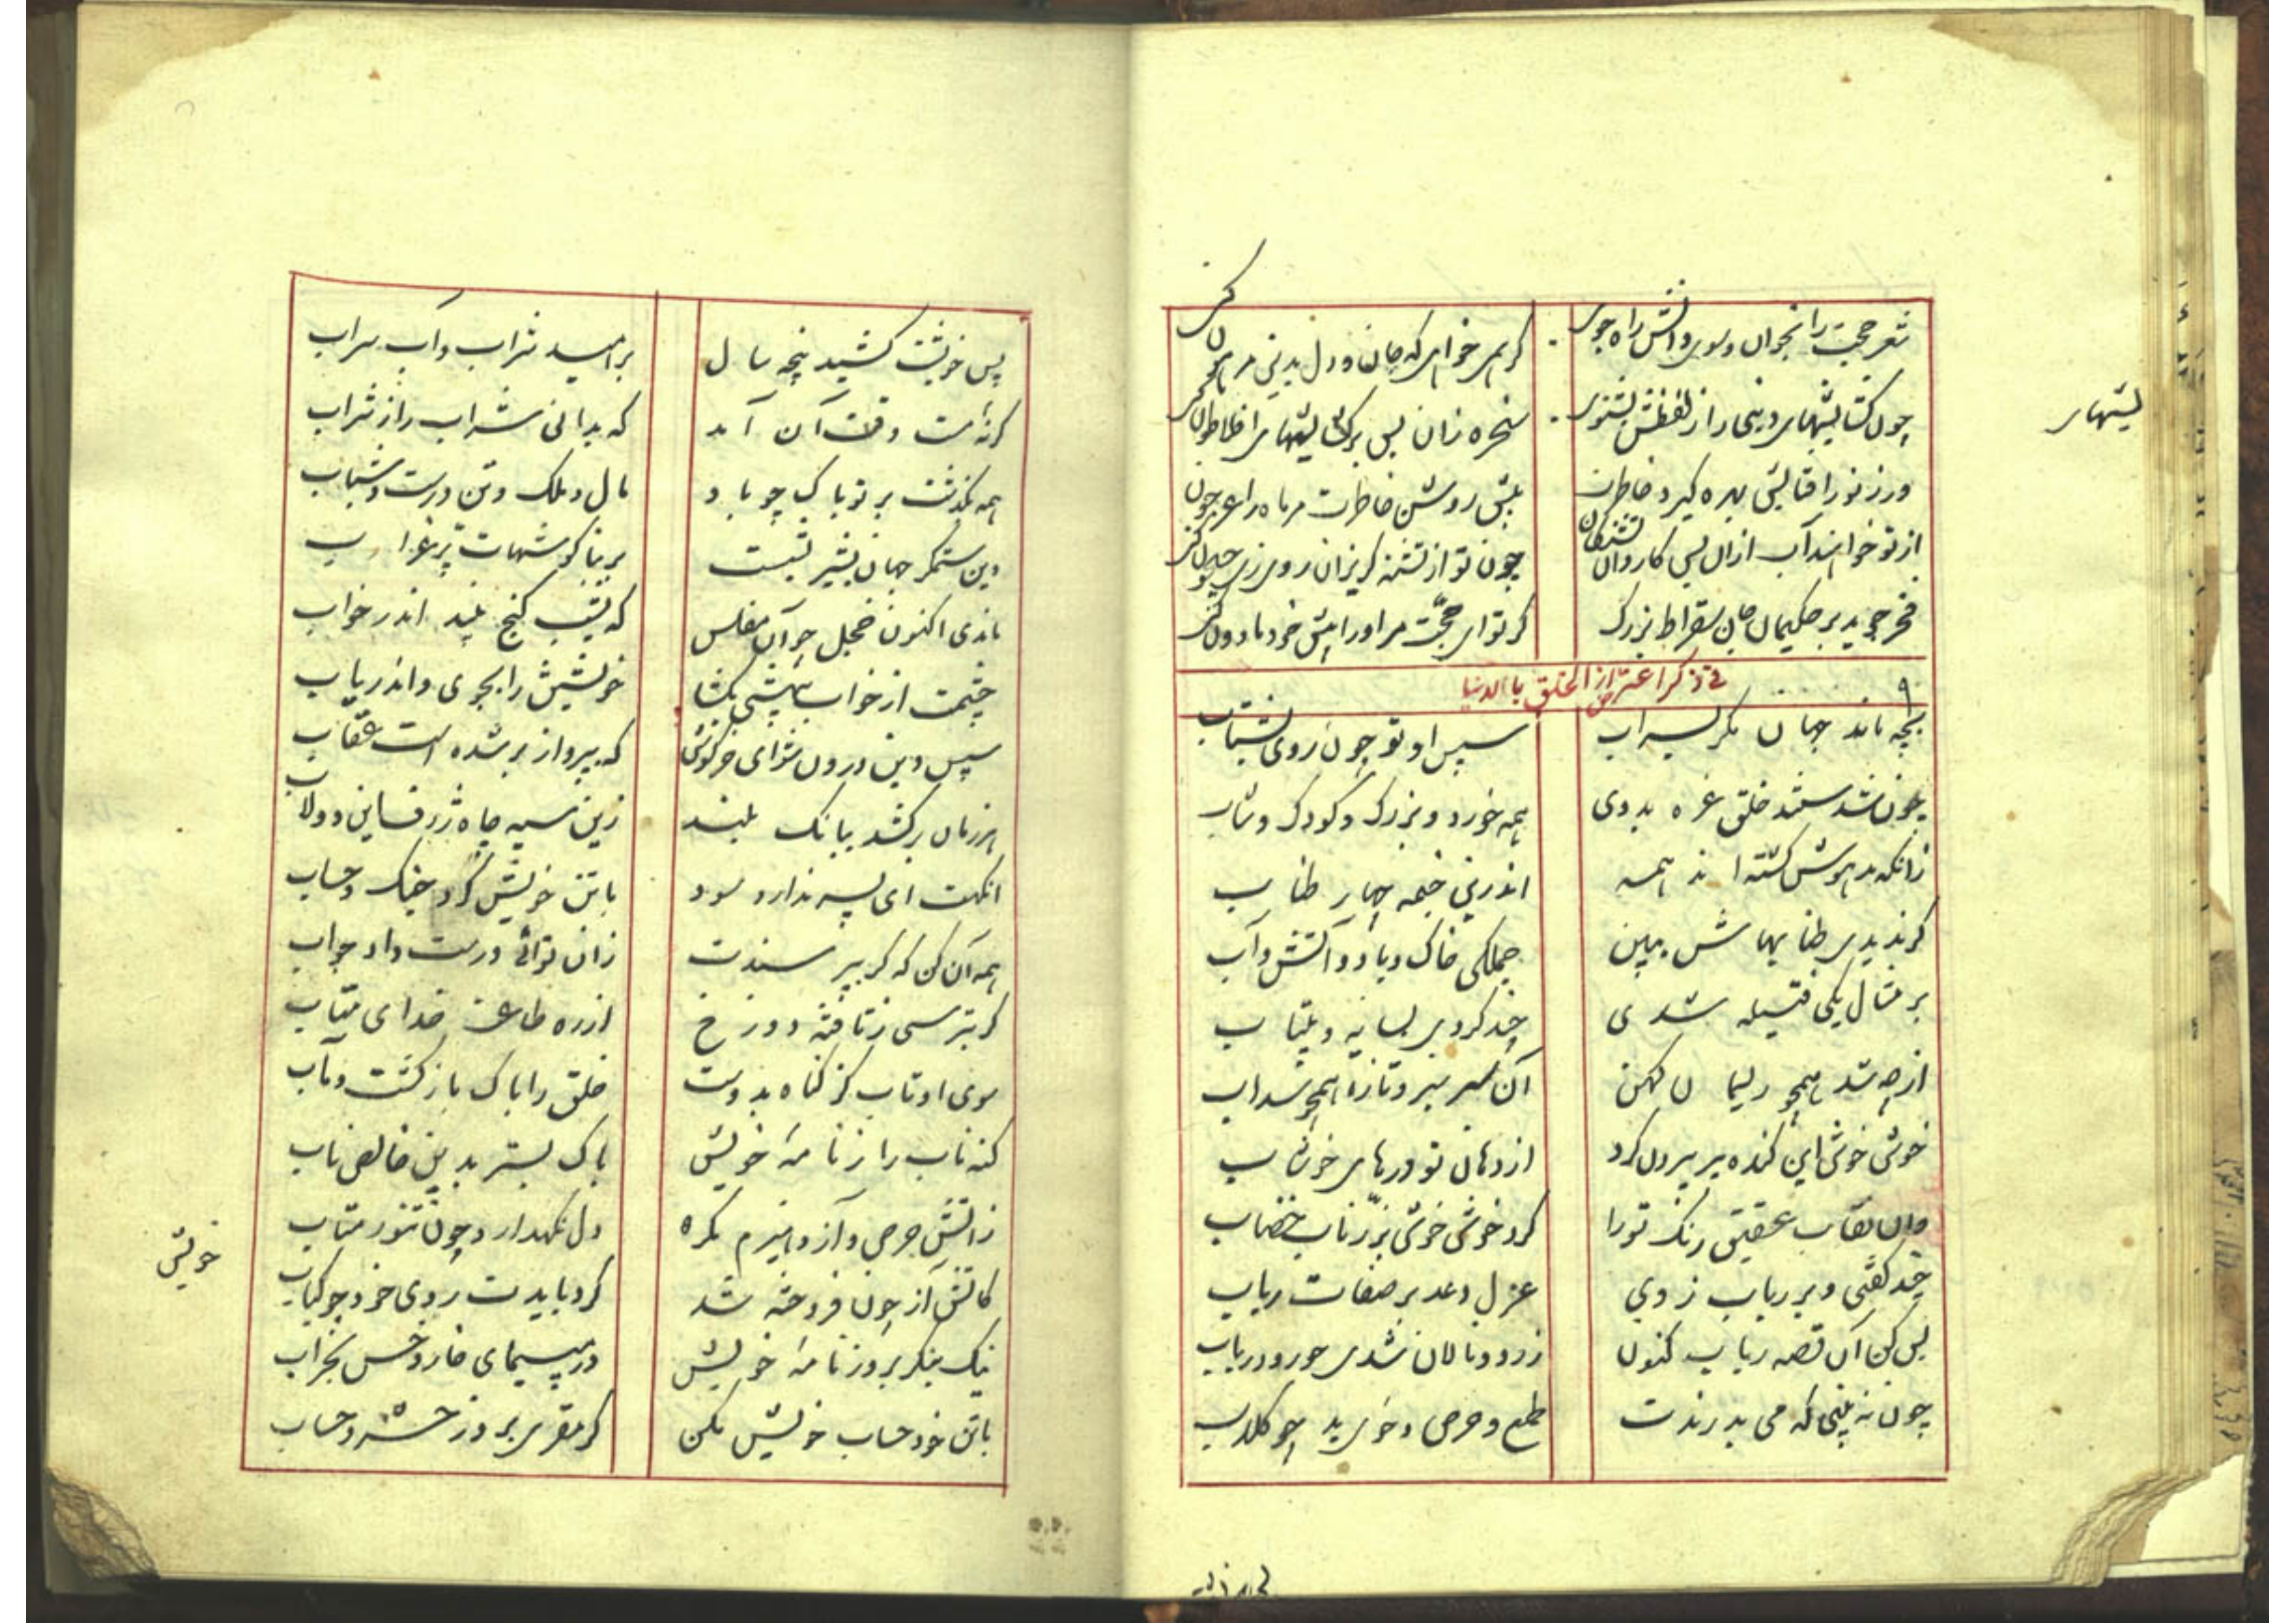 شعر حجت را بخوان و سوی دانش راه جوی
گر همی خواهی که جان و دل بدین مرهون کنی
چون گشایشهای دینی را ز لفظش بشنوی
سخره زان پس برگشایشهای افلاطون کنی
ور ز نور آفتابش بهره گیرد خاطرت
پیش روشن خاطرت مر ماه را عرجون کنی
از تو خواهند آب ازان پس کاروان تشنگان
چون تو از تشنه گریزان روی زی جیحون کنی
فخر جوید بر حکیمان جان سقراط بزرگ
گر تو ای حجّت مر او را پیش خود ماذون کنی
فی ذکر اعتراض الخلق بالدنیا
۹
بچه ماند جهان مگر بسراب
سپس او تو چون دوی بشتاب
چون شدستند خلق غره بدوی
همه خورد و بزرگ و کودک و شاب
زانکه مدهوش گشته اند همه
اندرین خیمه چهار طناب
گر ندیدی طنابهاش ببین
جملگی خاک و باد و آتش و آب
بر مثال یکی فتیله شدی
چند گردی بسایه و بلتاب
از چه شد همچو ریسمان کهن
آن سر سبز و تازه همچو سداب
خوش خوش این گنده پیر بیرون کرد
از دهان تو درهای خوشاب
وان نقاب عقیق رنگ تورا
کرد خوش خوش بزرّ ناب خضاب
چند گفتی و بر رباب زدی
غزل دعد بر صفات رباب
بس کن آن قصه رباب کنون
زرد و نالان شدی چو رود رباب
چون نه بینی که می بدرندت
طمع و حرص و خوی بد چو کلاب
پس خویشت کشید پنجه سال
بر امید شراب و آب سراب
گرنه مست وقت آن آمد
که بدانی سراب را ز شراب
همه بگذشت بر تو پاک چو باد
مال و ملک و تن درست و شباب
وین ستمگر جهان بشیر بشست
بر بناگوشهات پّر غراب
ماندی اکنون خجل چو آن مفلس
که بشب گنج بیند اندر خواب
چشمت از خواب بیهشی بگشا
خویشتن را بجوی و اندر یاب
سپس دین درون شو ای خرگوش
که بپرواز بر شده است عقاب
هر زمان برکشد ببانگ بلند
زین سیه چاه ژرف این دولاب
انگهت ای پسر ندارد سود
با تن خویش کرد جنگ و حساب
همه آن کن که گر بپرسندت
زان توانی درست داد جواب
گر بترسی ز تافته دوزخ
از ره طاعت خدای متاب
سوی او تاب کز گناه بدوست
خلق را پاک باز گشت و مآب
گنه ناب را ز نامه خویش
پاک بستر بدین خالص ناب
ز آتش حرص و آز و هیزم مکر
دل نگهدار و چون تنور متاب
کاتش آز چون فروخته شد
گرد بایدت روی خود چو کباب
نیک بنگر بروز نامه خویش
در مپیمای خار و خس بجراب
با تن خود حساب خویش بکن
گر مقری بروز حشر و حساب
خویش